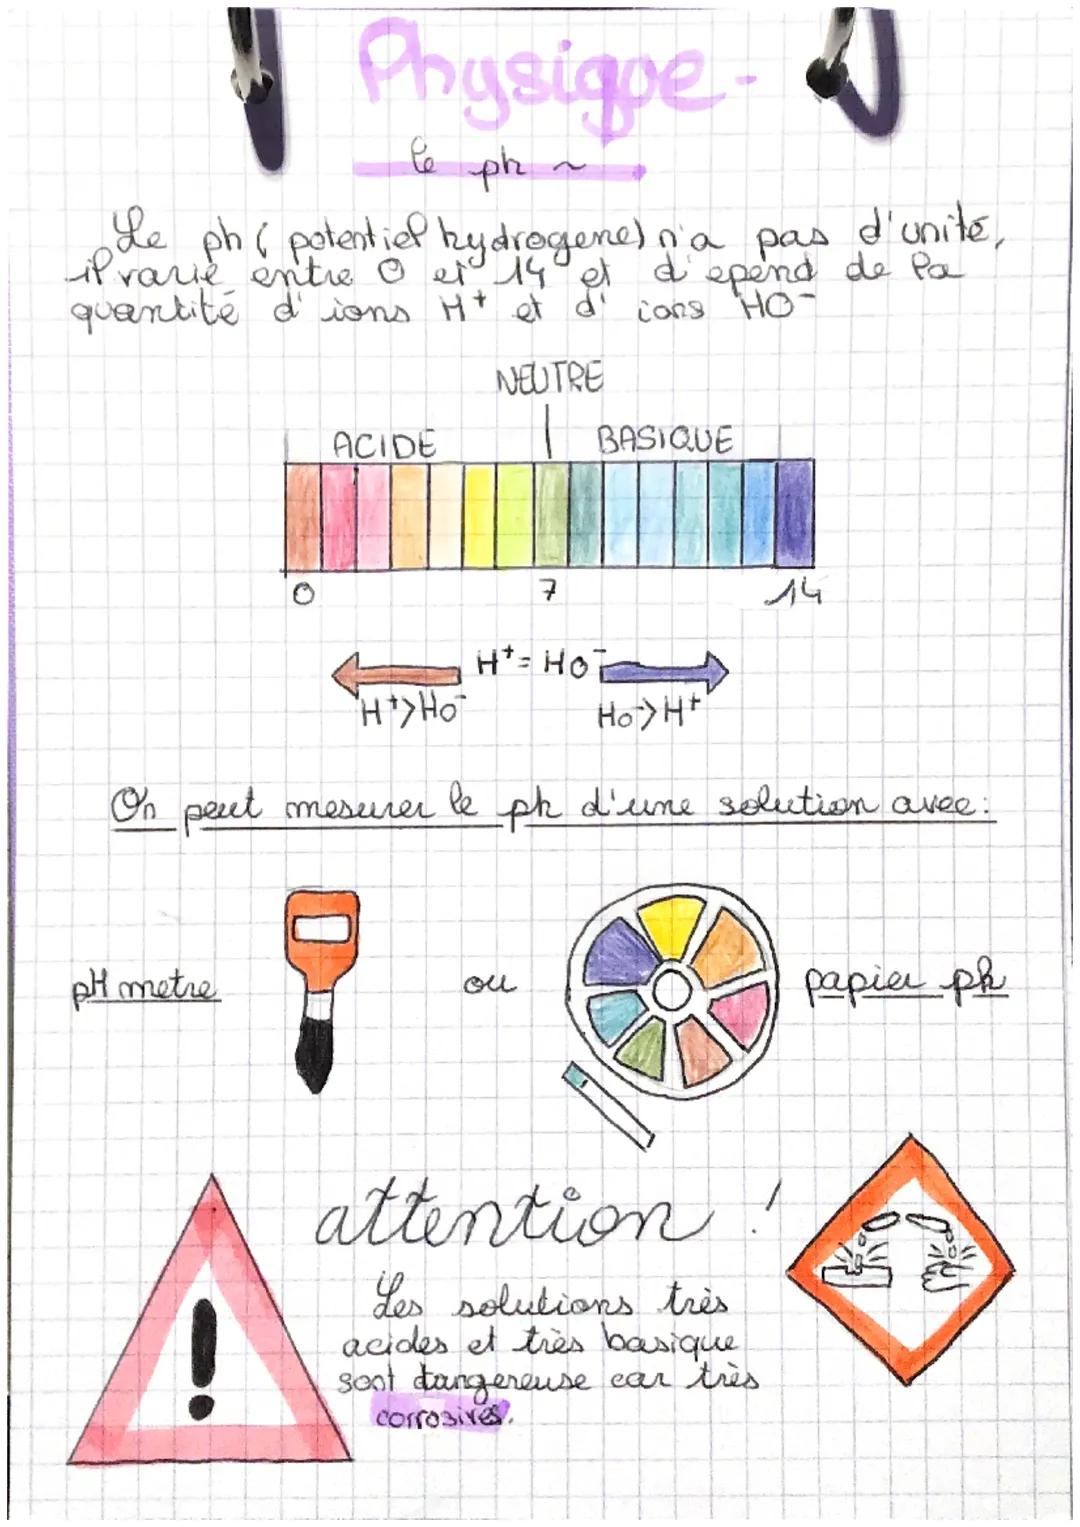 Physique -
le ph ~
Le ph ( potentiel hydrogene) n'a pas d'unité,
il varie entre 0 et 14 et d'epend de la
quantité d'ions H+ et d' ions HO-
NEUTRE
ACIDE BASIQUE
0 7 14
H+ = HO-
H+>HO- HO->H+
On peut mesurer le ph d'une solution avec:
pH metre ou papier ph
attention !
Les solutions très
acides et très basique
sont dangereuse car très
corrosives.